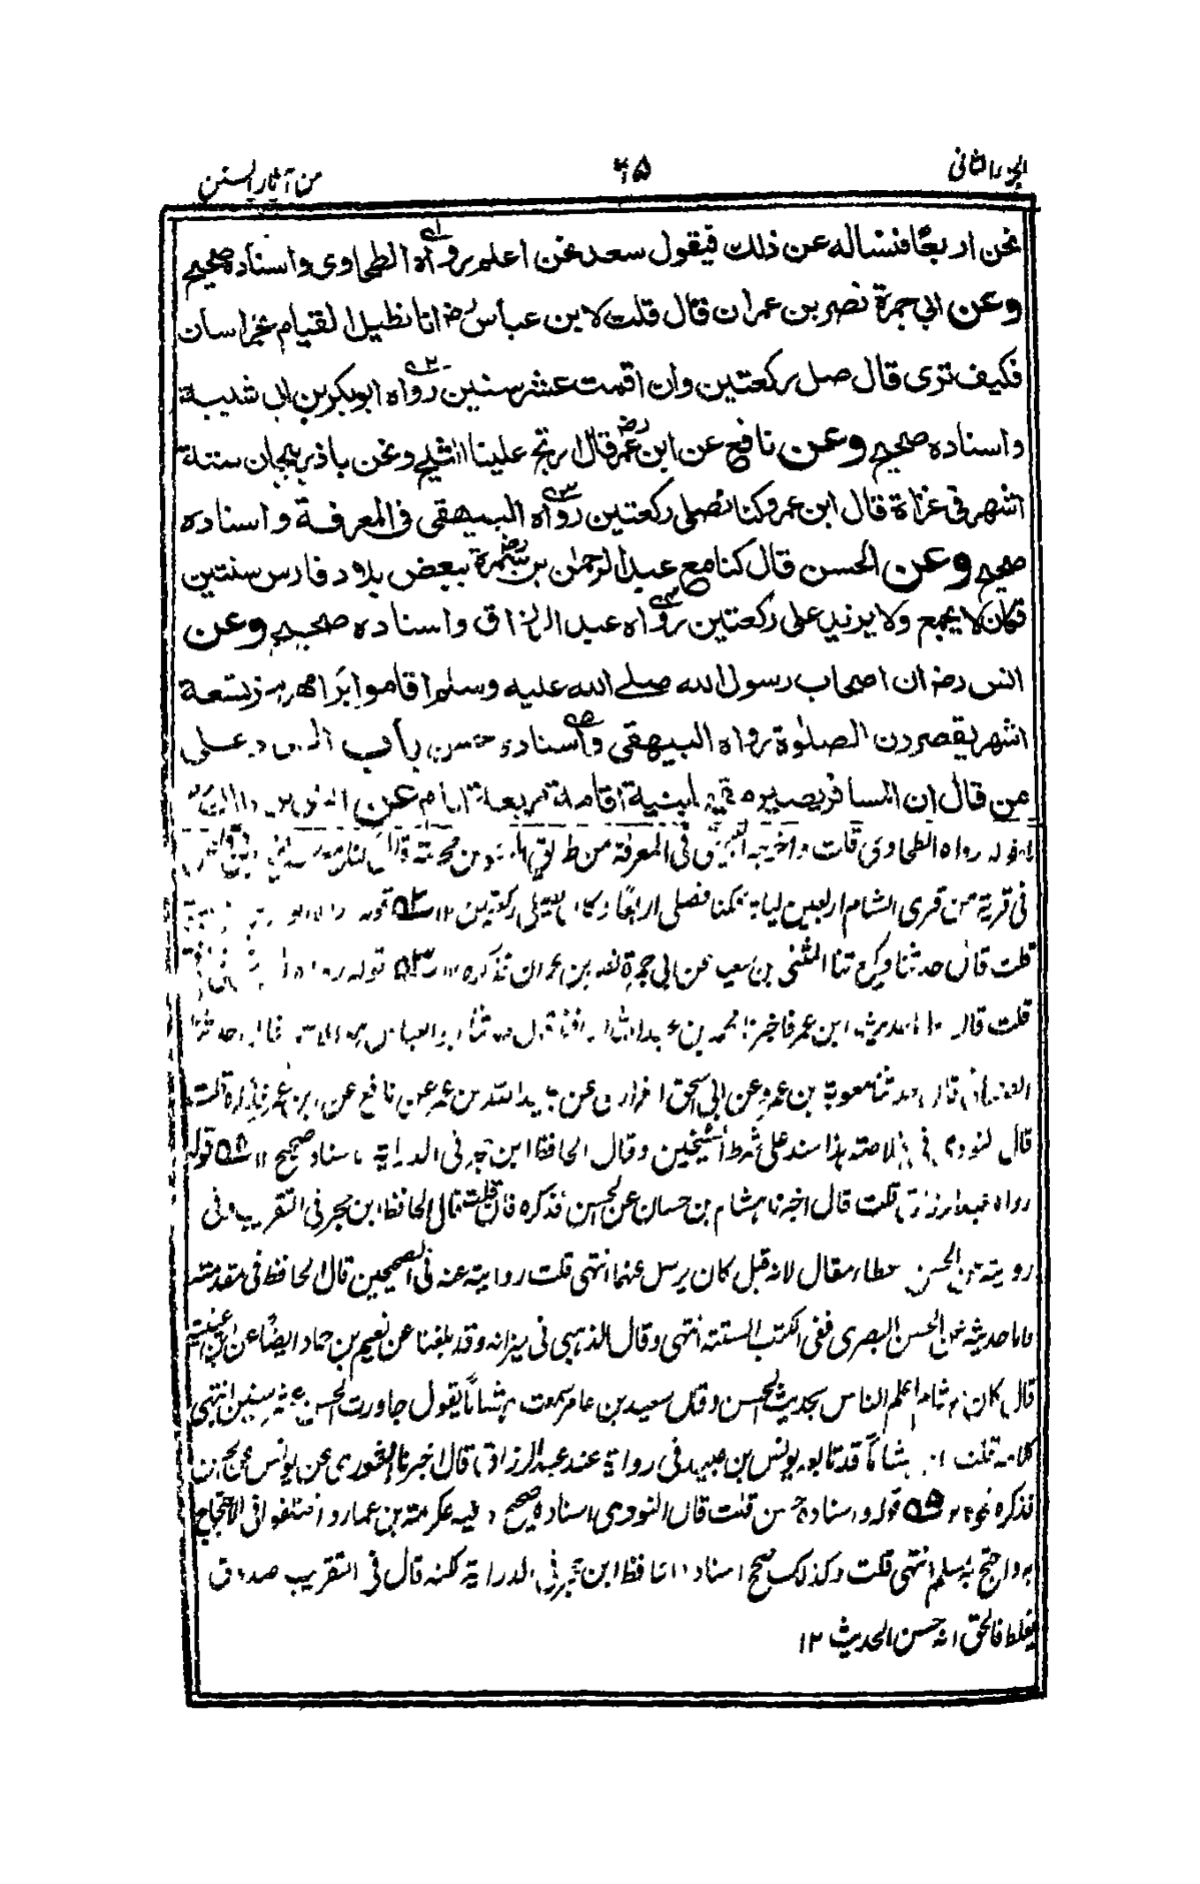 الجزء الثانی
٦٥
من آثار السنن
نحن اربعًا فنسأله عن ذلك فيقول سعد نحن اعلم رواه الطحاوی واسناده صحيح
وعن ابی جمرة نصر بن عمران قال قلت لابن عباس رضـ انا نطيل القيام بخراسان
فكيف تری قال صل ركعتين وان اقمت عشر سنين رواه ابوبكر بن ابی شيبة
واسناده صحيح وعن نافع عن ابن عمر رضـ قال ارتج علينا الثلج ونحن باذربيجان ستة
اشهر فی غزاة قال ابن عمر وكنا نصلی ركعتين رواه البيهقی فی المعرفة واسناده
صحيح وعن الحسن قال كنا مع عبد الرحمٰن بن سمرة رضـ ببعض بلاد فارس سنتين
فكان لا يجمع ولا يزيد علی ركعتين رواه عبد الرزاق واسناده صحيح وعن
انس رضـ ان اصحاب رسول الله صلے الله عليه وسلم اقاموا برامهرمز تسعة
اشهر يقصرون الصلوٰة رواه البيهقی واسناده حسن باب الرد علی
من قال ان المسافر يصير مقيما بنية اقامة اربعة ايام عن
قوله رواه الطحاوی قلت واخرجه البيهقی فی المعرفة من طريق
فی قرية من قری الشام اربعين ليلة فكنا نصلی اربعًا وكان يصلی ركعتين ١٢ ٢ قوله
قلت قال حدثنا وكيع ثنا المثنی بن سعيد عن ابی جمرة نصر بن عمران فذكره ١٢ ٣ قوله رواه
قلت قال ابن عمر فاخبرنا محمد بن عبد الله ابو العباس قال حدثنا
قال حدثنا معوية بن عمرو عن ابی اسحق الفزاری عن عبيد الله بن عمر عن نافع عن ابن عمر
قال النووی فی الخلاصة هذا سند علی شرط الشيخين وقال الحافظ ابن حجر فی الدراية باسناد صحيح ١٢ قوله
رواه عبد الرزاق قلت قال اخبرنا هشام بن حسان عن الحسن فذكره فان قلت قال الحافظ ابن حجر فی التقريب وفی
روايته عن الحسن وعطاء مقال لانه قيل كان يرسل عنهما انتهی قلت روايته عنه فی الصحيحين قال الحافظ فی مقدمته
واما حديثه عن الحسن البصری ففی الكتب الستة انتهی وقال الذهبی فی ميزانه وقد بلغنا عن نعيم بن حماد ايضًا عن ابن عيينة
قال كان هشام اعلم الناس بحديث الحسن وقال سعيد بن عامر سمعت هشامًا يقول جاورت الحسن عشر سنين انتهی
كلامه قلت ان هشامًا قد تابعه يونس بن عبيد فی رواية عند عبد الرزاق قال اخبرنا الثوری عن يونس عن الحسن
فذكره نحوه ١٢ ٥ قوله واسناده حسن قلت قال النووی اسناده صحيح وفيه عكرمة بن عمار واختلفوا فی الاحتجاج
به واحتج به مسلم انتهی قلت وكذلك صحح اسناده الحافظ ابن حجر فی الدراية لكنه قال فی التقريب صدوق
يغلط فالحق انه حسن الحديث ١٢